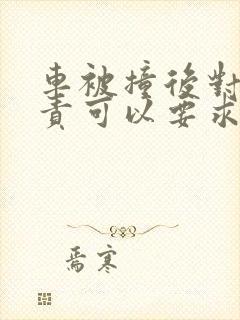 車被撞後對
責可以要求
焉寒